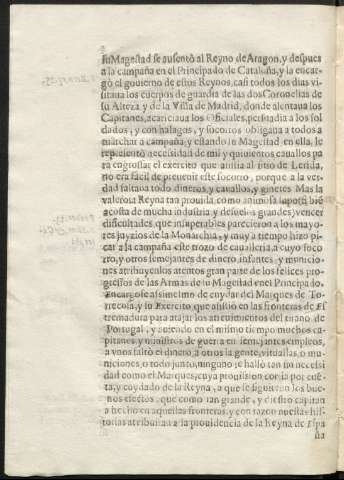 su Magestad se ausentò al Reyno de Aragon, y despues
a la campaña en el Principado de Cataluña, y la encar-
gò el gouierno de estos Reynos, casi todos los dias vi-
sitaua los cuerpos de guardia de las dos Coronelias de
su Alteza y de la Villa de Madrid, donde alentaua los
Capitanes, acariciaua los Oficiales, persuadia a los sol-
dados, y con halagos, y socorros obligaua a todos a
marchar a campaña, y estando su Magestad en ella, le
representò necessidad de mil y quinientos cauallos pa
ra engrossar el exercito que assistia al sitio de Lerida,
no era facil de preuenir este socorro, porque a la ver-
dad faltaua todo dineros y cauallos, y ginetes Mas la
valerosa Reyna tan prouida como animosa
a costa de mucha industria y desuelos grandes, vencer
dificultades, que insuperables parecieron a los mayo-
res juyzios de la Monarchia, y muy a tiempo hizo pi-
car a la campaña este trozo de caualleria, a cuyo soco
rro, y otros semejantes de dinero, infantes, y municio-
nes atribuyen los atentos gran parte de los felices pro-
gressos de las Armas de su Magestad en el Principado.
Encargose assimismo de cuydar del Marques de To-
rrecusa, y su Exercito que assistió en las fronteras de Es
tremadura para atajar los atreuimientos del tirano de
Portugal, y auiendo en el mismo tiempo muchos ca-
pitanes, y ministros de guerra en semejantes empleos,
a vnos faltò el dinero, a otros la gente, vituallas, o mu-
niciones, o todo junto, ninguno se hallò tan sin necessi
dad como el Marques, cuya prouision corria por cuē-
ta, y cuydado de la Reyna, a que se siguieron los bue-
nos efectos, que como tan grande, y diestro capitan
a hecho en aquellas fronteras, y con razon nuestras his-
torias atribuiran a la prouidencia de la Reyna de Espa
ña